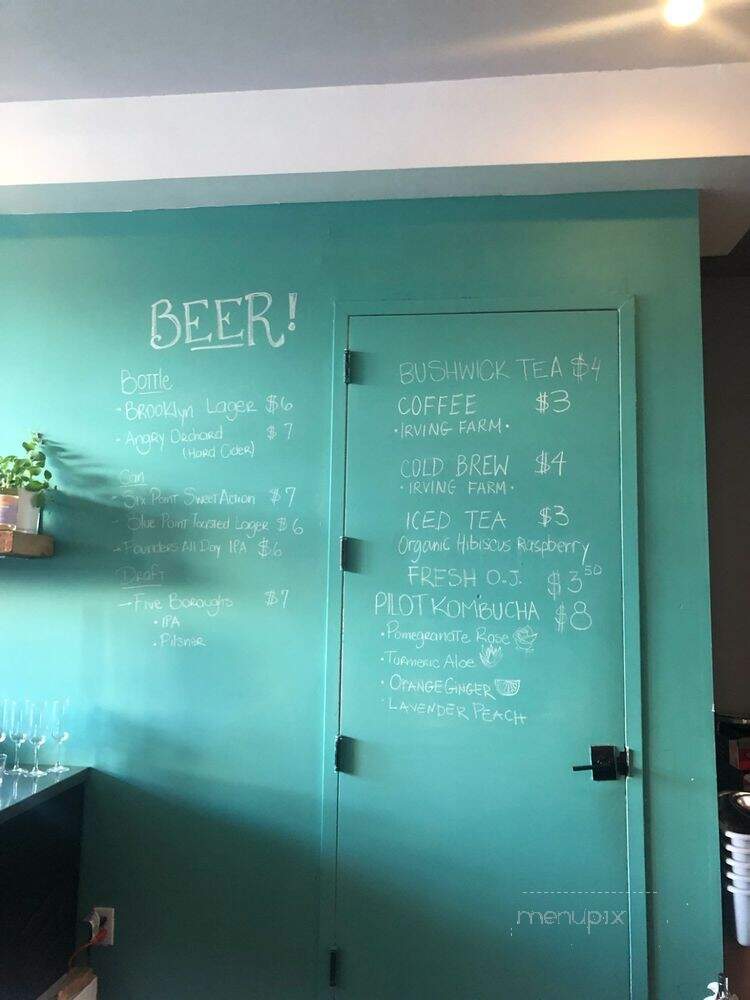 BEER!
Bottle
· Brooklyn Lager $6
· Angry Orchard $7
(Hard Cider)
Can
- Six Point Sweet Action $7
- Blue Point Toasted Lager $6
- Founders All Day IPA $6
Draft
- Five Boroughs $7
· IPA
· Pilsner
BUSHWICK TEA $4
COFFEE $3
· IRVING FARM ·
COLD BREW $4
· IRVING FARM ·
ICED TEA $3
Organic Hibiscus Raspberry
FRESH O.J. $3 50
PILOT KOMBUCHA $8
· Pomegranate Rose
· Turmeric Aloe
· ORANGE GINGER
· LAVENDER PEACH
menupix